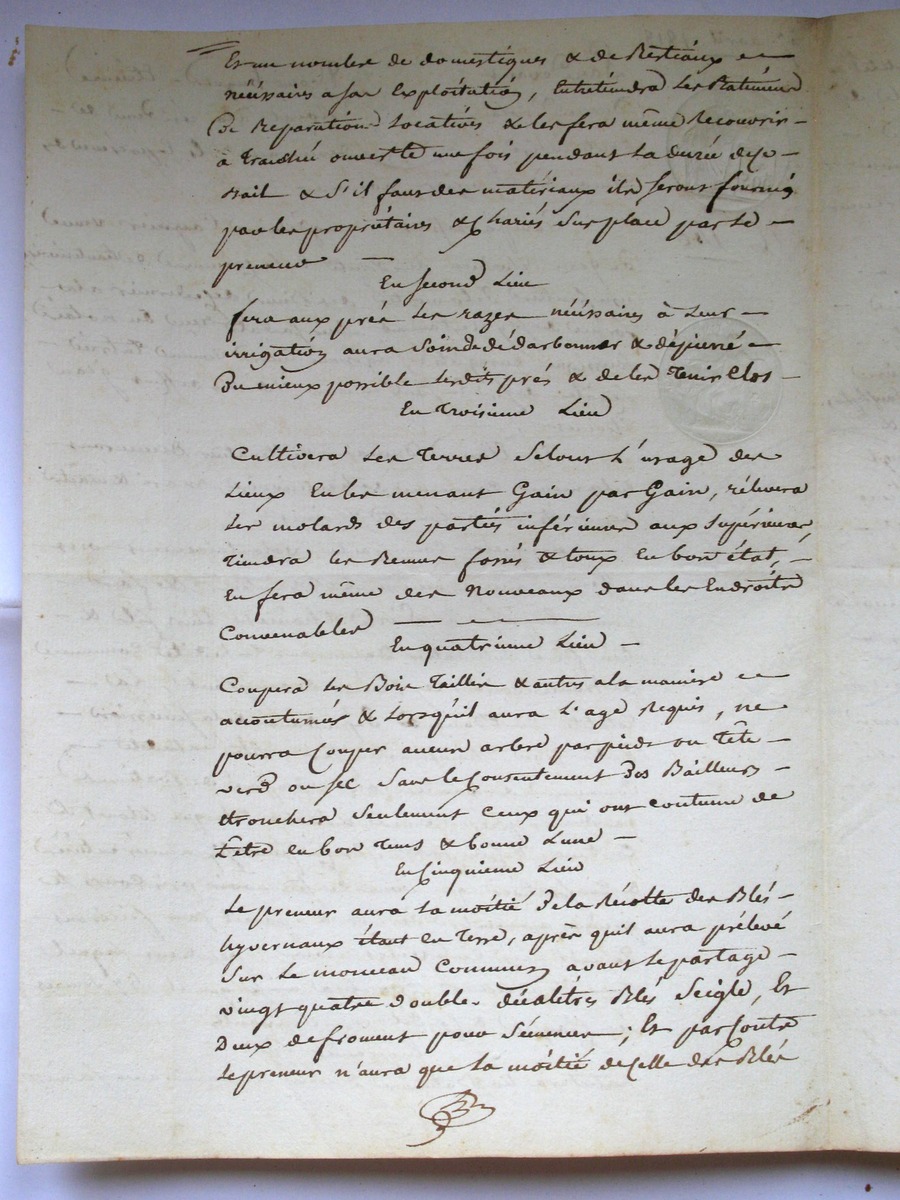 Et un nombre de domestiques & de Bestiaux
nécéssaires a son Exploitation, Entretiendra les Batimens
De Reparations Locatives & les fera même Recouvrir
a ouverte une fois pendant la durée de ce
Bail & S'il faut des matériaux ils seront fournis
par les propriétaires & Chariés Sur place par le
preneur
En second Lieu
fera aux prés les razes nécéssaires à Leur
irrigation aura Soin de dédarbonner & dépierré
Du mieux possible lesdits prés & de les Tenir Clos
En Troisieme Lieu
Cultivera Les Terres Selont L'usage des
Lieux En les menant Gain par Gain, rélevera
les molards des parties inférieures aux Supérieures,
Tiendra les Bermes fossés & toux En bon état,
En fera même des Nouveaux dans les Endroits
Convenables
En quatrieme Lieu
Coupera les Bois Taillis & autres a la maniere
accoutumés & Lorsqu'il aura L'age Requis, ne
pourra Couper aucun arbre par pieds ou Tête
verd ou sec Sans le Consentement Des Bailleurs
ttronchera Seulement Ceux qui ont coutume de
L'être en bon Tems & bonne Lune
En Cinquieme Lieu
Le preneur aura la moitié De la Récolte des Blés
hyvernaux étant en Terre, après quil aura prélevé
Sur Le monceau Commun avant le partage
vingt quatre double décalitres Blés Seigle, Et
Deux de froment pour Sémence; Et par Contre
Le preneur n'aura que la moitié de Celle des Blés